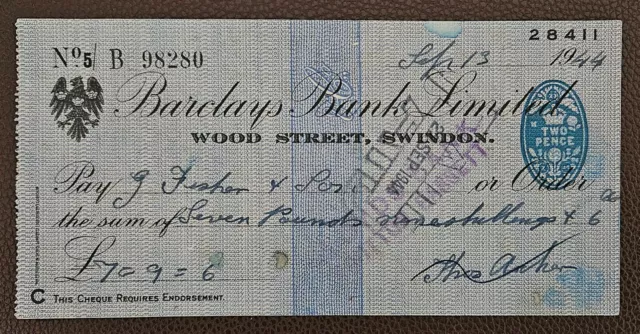 28411
Nº 5/B 98280
Sep 13 1944
Barclays Bank Limited
WOOD STREET, SWINDON.
TWO PENCE
SEP 1944
Pay G Fisher & Son or Order
the sum of Seven Pounds nine shillings & 6
£7 = 9 = 6
C THIS CHEQUE REQUIRES ENDORSEMENT.